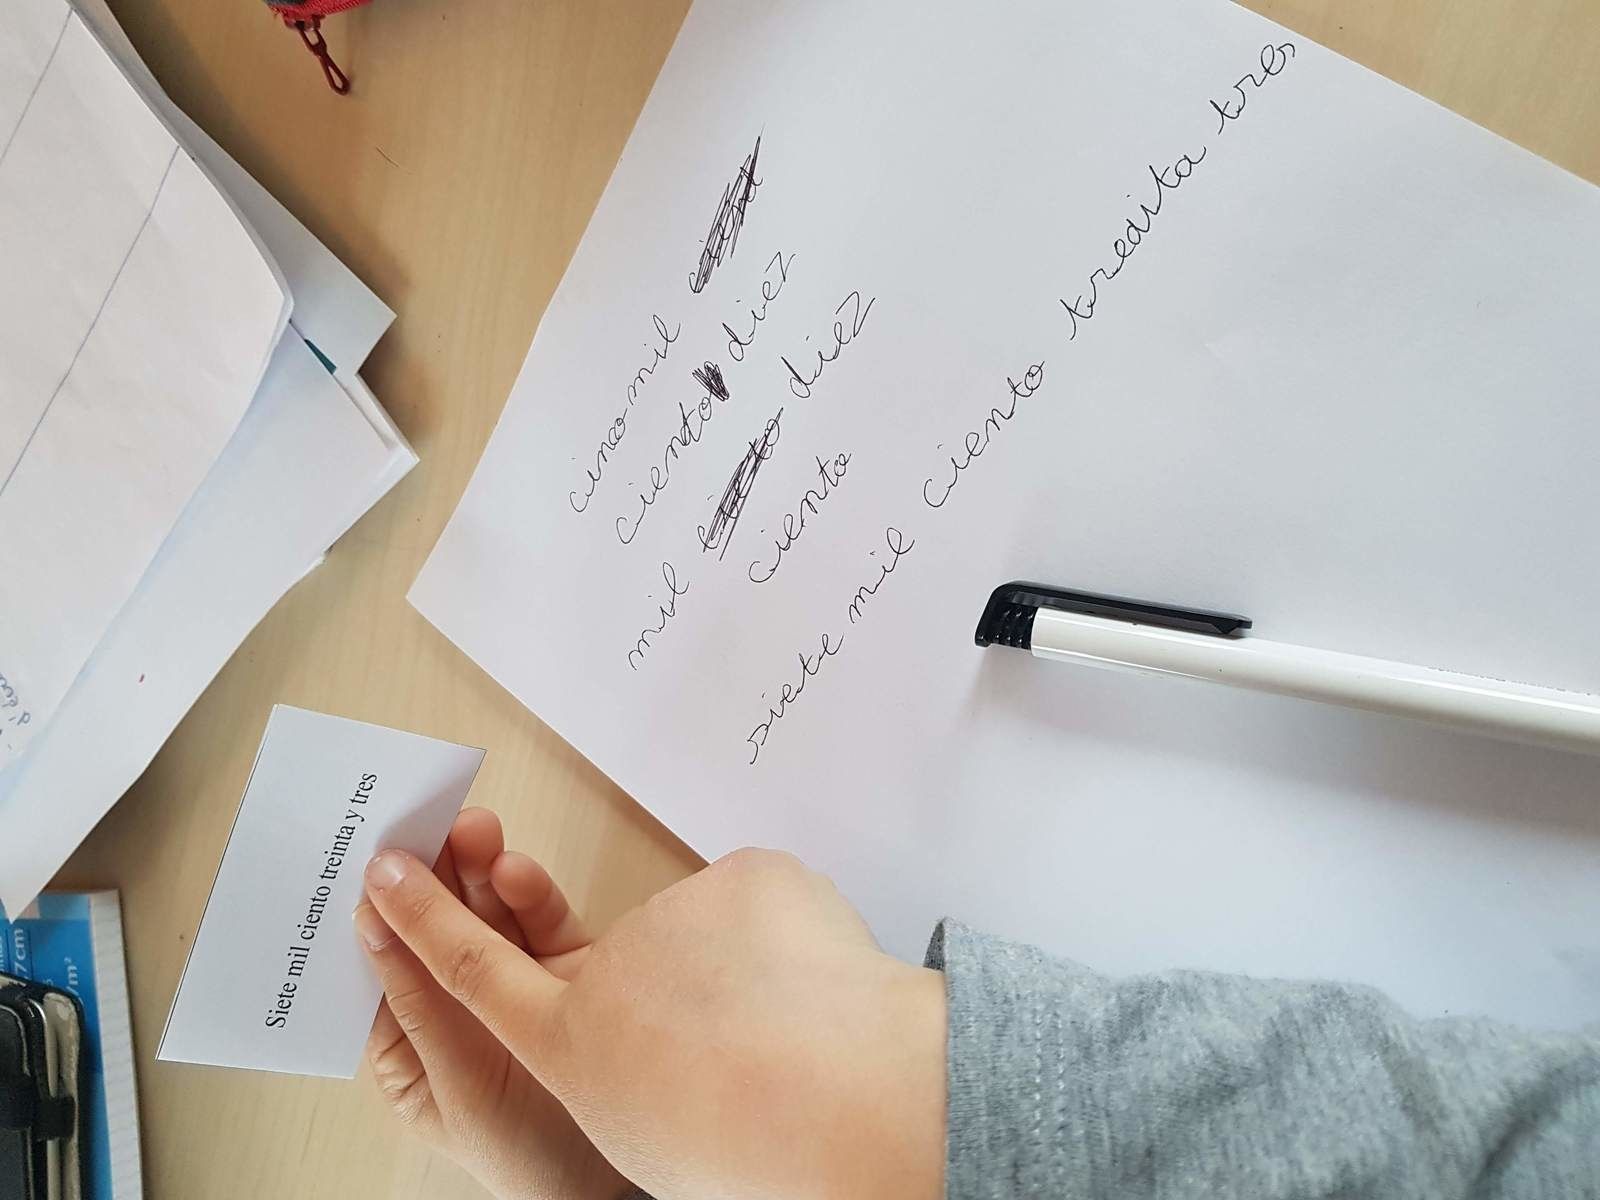 cinco mil
ciento diez
mil diez
ciento
siete mil ciento tredita tres
Siete mil ciento treinta y tres
7cm
/m²